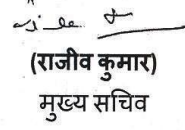 (राजीव कुमार)
मुख्य सचिव